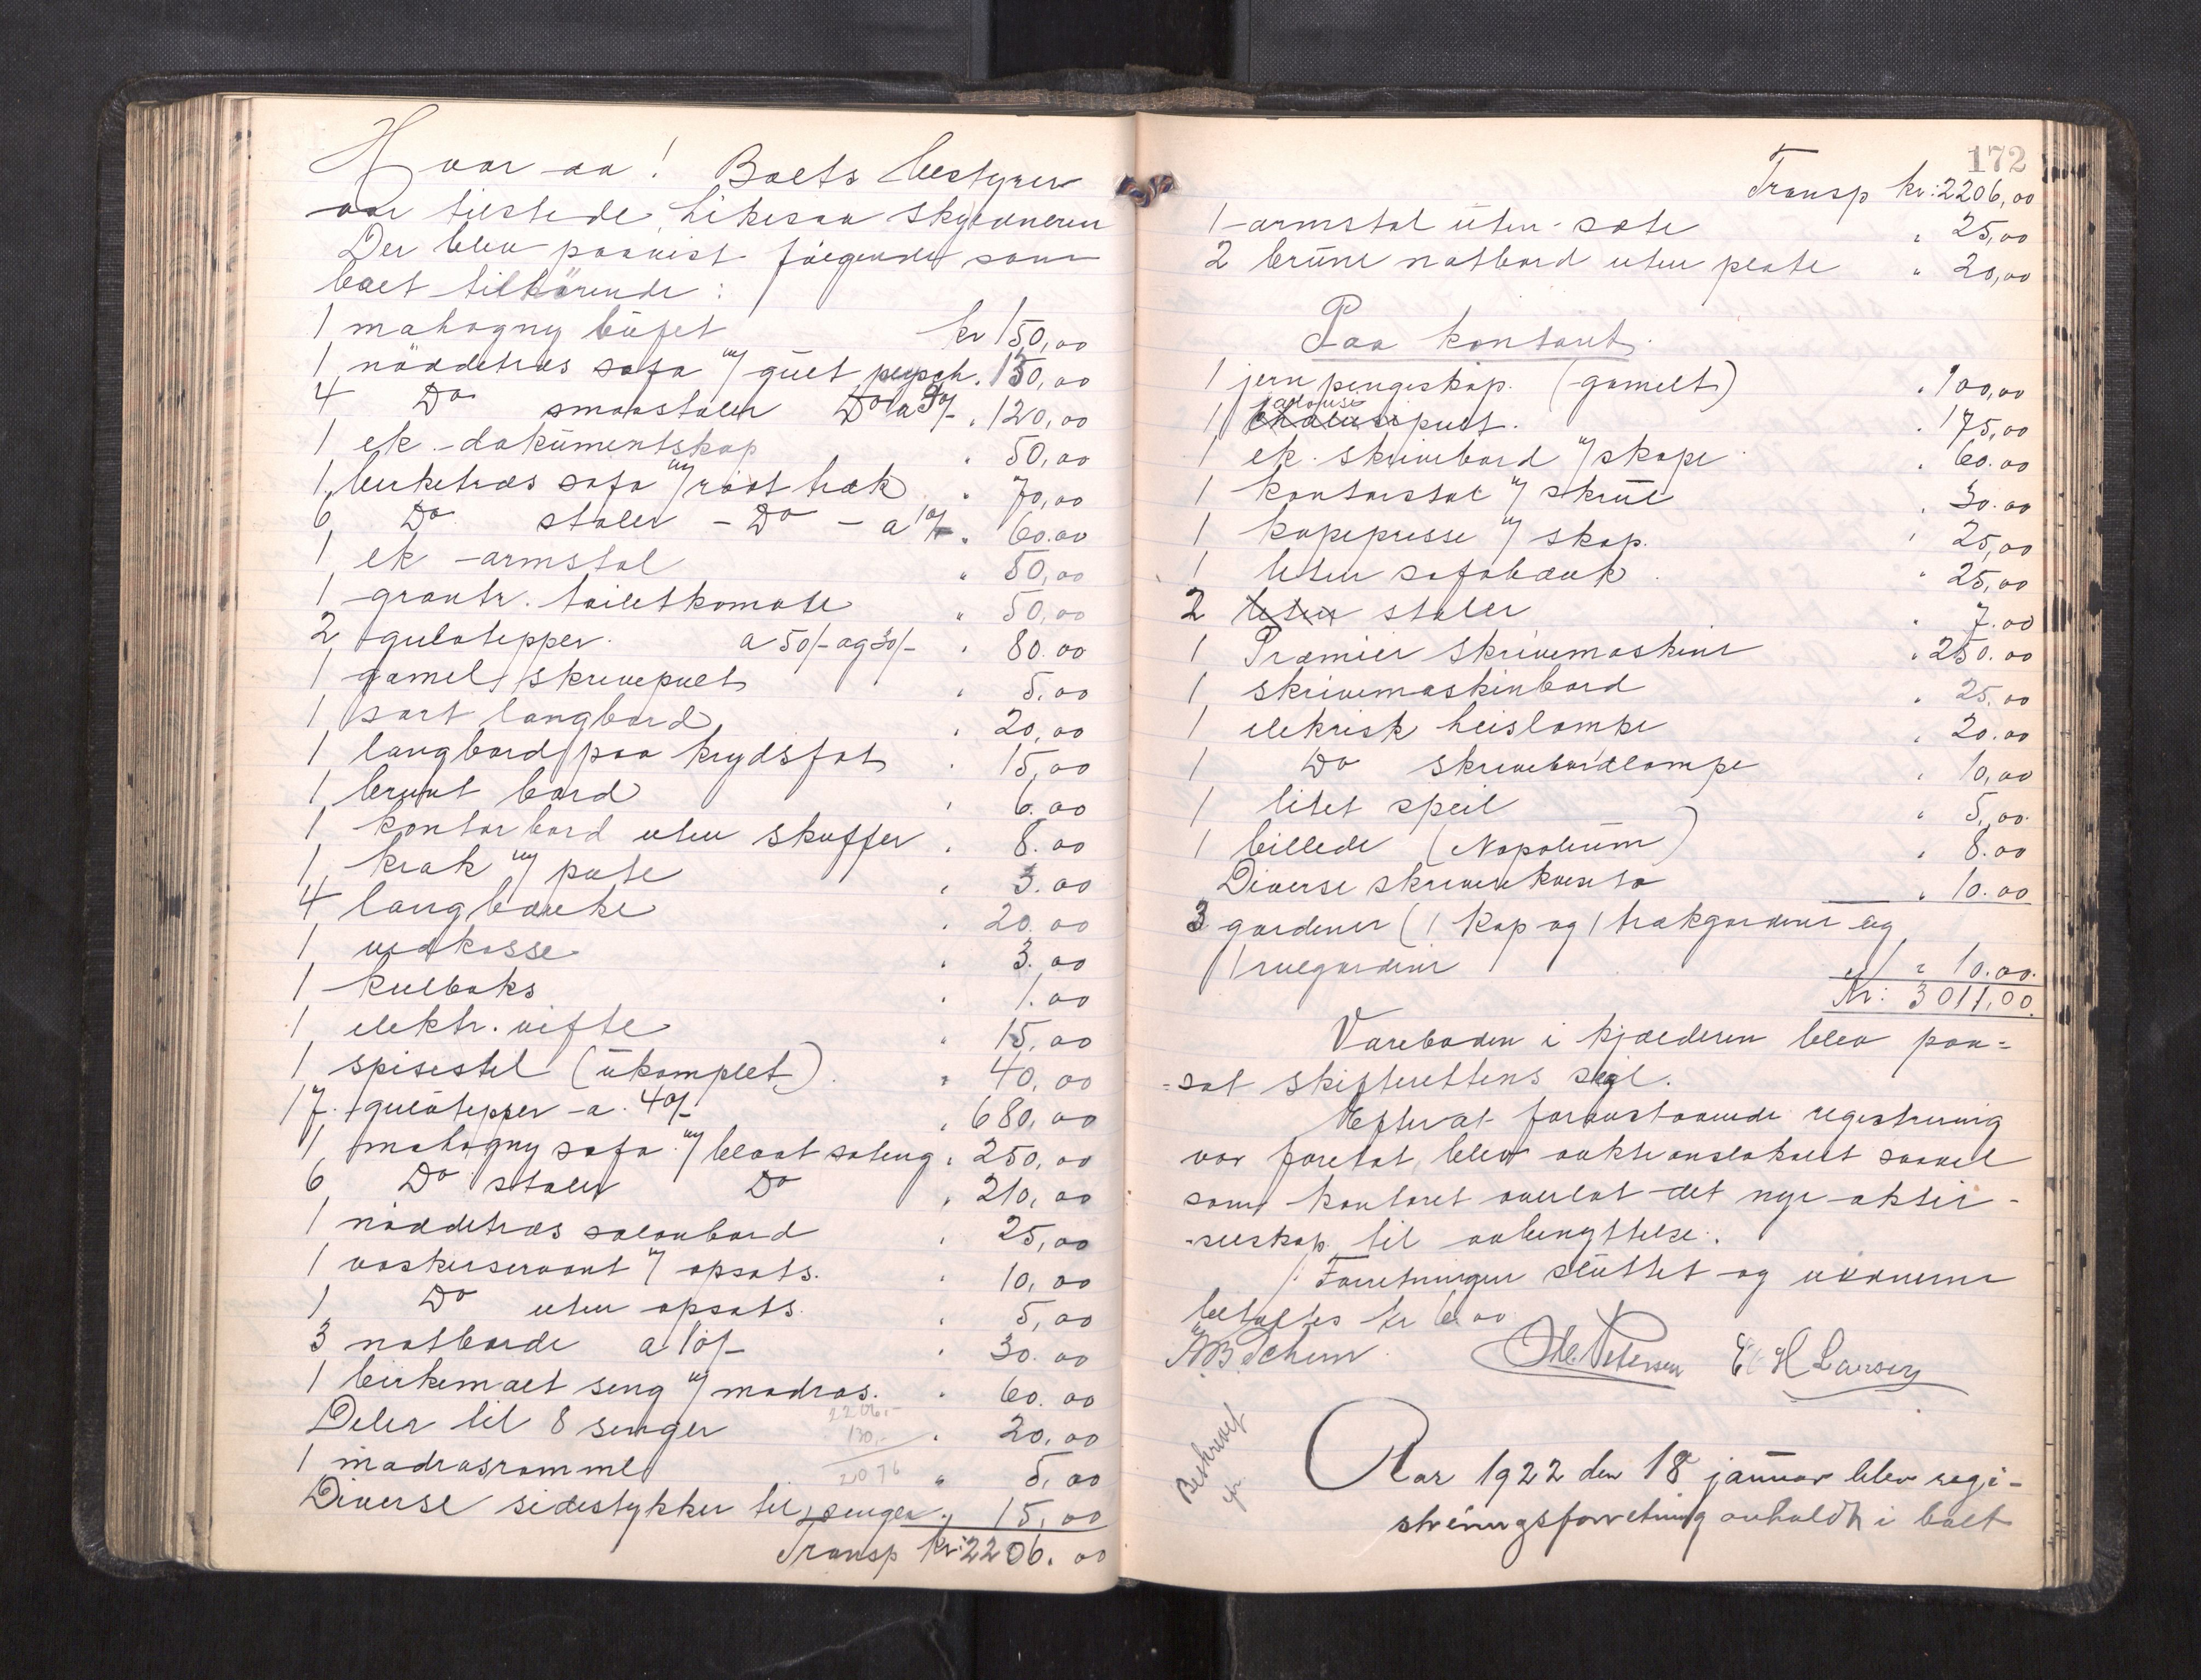 Hvor da! Boets bestyrer
var tilstede. Likesaa skyldneren
Der blev paavist følgende som
boet tilhörende:
1 mahogny büfet kr 150,00
1 nöddetræs sofa m/ gult plysch. " 150,00
4 Do smaastoler Do a 30/- " 120,00
1 ek. dokümentskap " 50,00
1 birketræs sofa m/ rödt træk " 70,00
6 Do stoler - Do - a 10/- " 60.00
1 ek - armstol " 50,00
1 grantr. toiletkomode " 50,00
2 gulvtepper. a 50/- og 30/- " 80.00
1 gamel skrivepult " 5.00
1 sort langbord " 20,00
1 langbord paa krydsfot " 15,00
1 brunt bord " 6.00
1 kontorbord uten skuffer " 8.00
1 krak m/ pute " 3.00
4 langbænke " 20.00
1 vedkasse " 3.00
1 kulboks " 1.00
1 elektr. vifte " 15,00
1 spisestel (ükomplet) " 40,00
17. gulvtepper a. 40/- " 680,00
1 mahogny sofa m/ blaat sateng " 250,00
6 Do stoler Do " 210,00
1 nöddetræs salonbord " 25,00
1 vaskeservant m/ opsats. " 10,00
1 Do uten opsats. " 5,00
3 natborde a 10/- " 30.00
1 birkemalt seng m/ madras. " 60.00
2206.-
Deler til 8 senger " 20,00
130.-
1 madrasramme " 5,00
2076
Diverse sidestykker til senger " 15,00
Transp kr: 2206.00
172
Transp kr: 2206,00
1 armstol üten sæte " 25,00
2 brüne natbord uten plate " 20,00
Paa kontoret.
1 jern pengeskap. (gamelt) " 100,00
jalousi
1 pult. " 175,00
1 ek. skrivebord m/ skape " 60.00
1 kontorstol m/ skrüe " 30.00
1 kopipresse m/ skap. " 25,00
1 liten sofabænk. " 25,00
2 liten stoler " 7.00
1 Premier skrivemaskine " 250.00
1 skrivemaskinbord " 25.00
1 elekrisk heislampe " 20.00
1 Do skrivebordlampe " 10,00
1 litet speil " 5,00.
1 billede (Napoleüm) " 8.00
Diverse skriverekvisita " 10.00
3 gardiner (1 kap og 1 trækgardiner og
1 rulegardin " 10.00.
Kr: 3011,00.
Vareboden i kjælderen blev paa=
=sat skifterettens segl.
Efterat foranstaaende registrering
var foretat, blev auktionslokalet saavel
som kontoret overlat det nye aktie-
-selskap til avbenyttelse.
Forretningen slüttet og vidnerne
betaltes kr 6.00
Ole Petersen E H Larsen
Beskrevet
Aar 1922 den 18 januar blev regi-
streringsforretning avholdt i boet